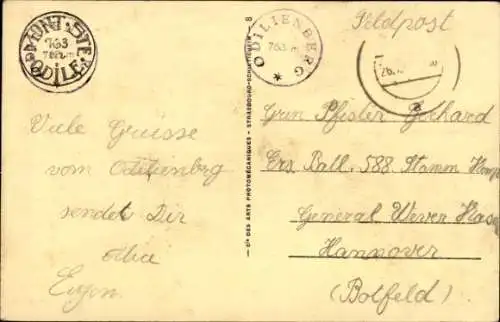 MONT·STE
763
ODILE
ODILIENBERG
763 m
Feldpost
26.
Viele Grüsse
vom Odilienberg
sendet Dir
Eugen
Cie DES ARTS PHOTOMÉCANIQUES - STRASBOURG-SCHILTIGHEIM - 8
Gren Pfister Gerhard
Ers. Batl. 588 Stamm Komp
General Wever Kase
Hannover
(Botfeld)